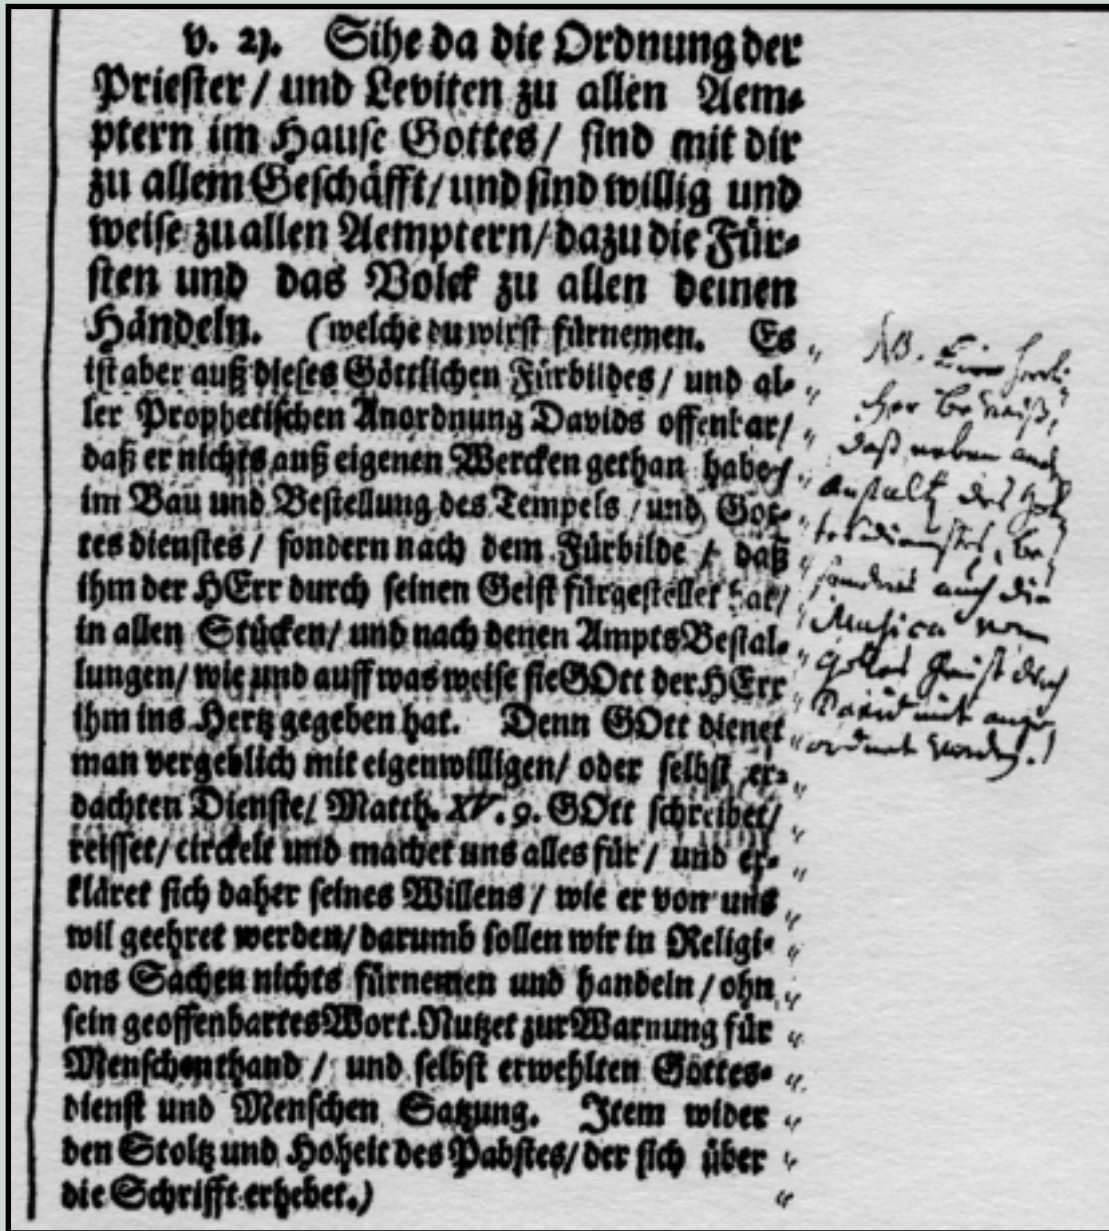 v. 21. Sihe da die Ordnung der
Priester / und Leviten zu allen Aem-
ptern im Hause Gottes / sind mit dir
zu allem Geschäfft / und sind willig und
weise zu allen Aemptern / dazu die Für-
sten und das Volck zu allen deinen
Händeln. (welche du wirst fürnemen. Es
ist aber auß dieses Göttlichen Fürbildes / und al-
ler Prophetischen Anordnung Davids offenbar /
daß er nichts auß eigenen Wercken gethan habe /
im Bau und Bestellung des Tempels / und Got-
tes dienstes / sondern nach dem Fürbilde / daß
ihm der HErr durch seinen Geist fürgestellet hat /
in allen Stücken / und nach denen Ampts Bestal-
lungen / wie und auff was weise sie GOtt der HErr
ihm ins Hertz gegeben hat. Denn GOtt dienet
man vergeblich mit eigenwilligen / oder selbst er-
dachten Dienste / Matth. XV. 9. GOtt schreibet /
reisset / circkelt und machet uns alles für / und er-
kläret sich daher seines Willens / wie er von uns
wil geehret werden / darumb sollen wir in Religi-
ons Sachen nichts fürnemen und handeln / ohn
sein geoffenbartes Wort. Nutzet zur Warnung für
Menschenthand / und selbst erwehlten Gottes-
dienst und Menschen Satzung. Item wider
den Stoltz und Hoheit des Pabstes / der sich über
die Schrifft erhebet.)
NB. Ein herrli-
cher Beweiß,
daß neben and
Anstalt des Got
tesdienstes, be
sonders auch die
Musica von
Gottes Geist durch
David mit ange
ordnet worden.